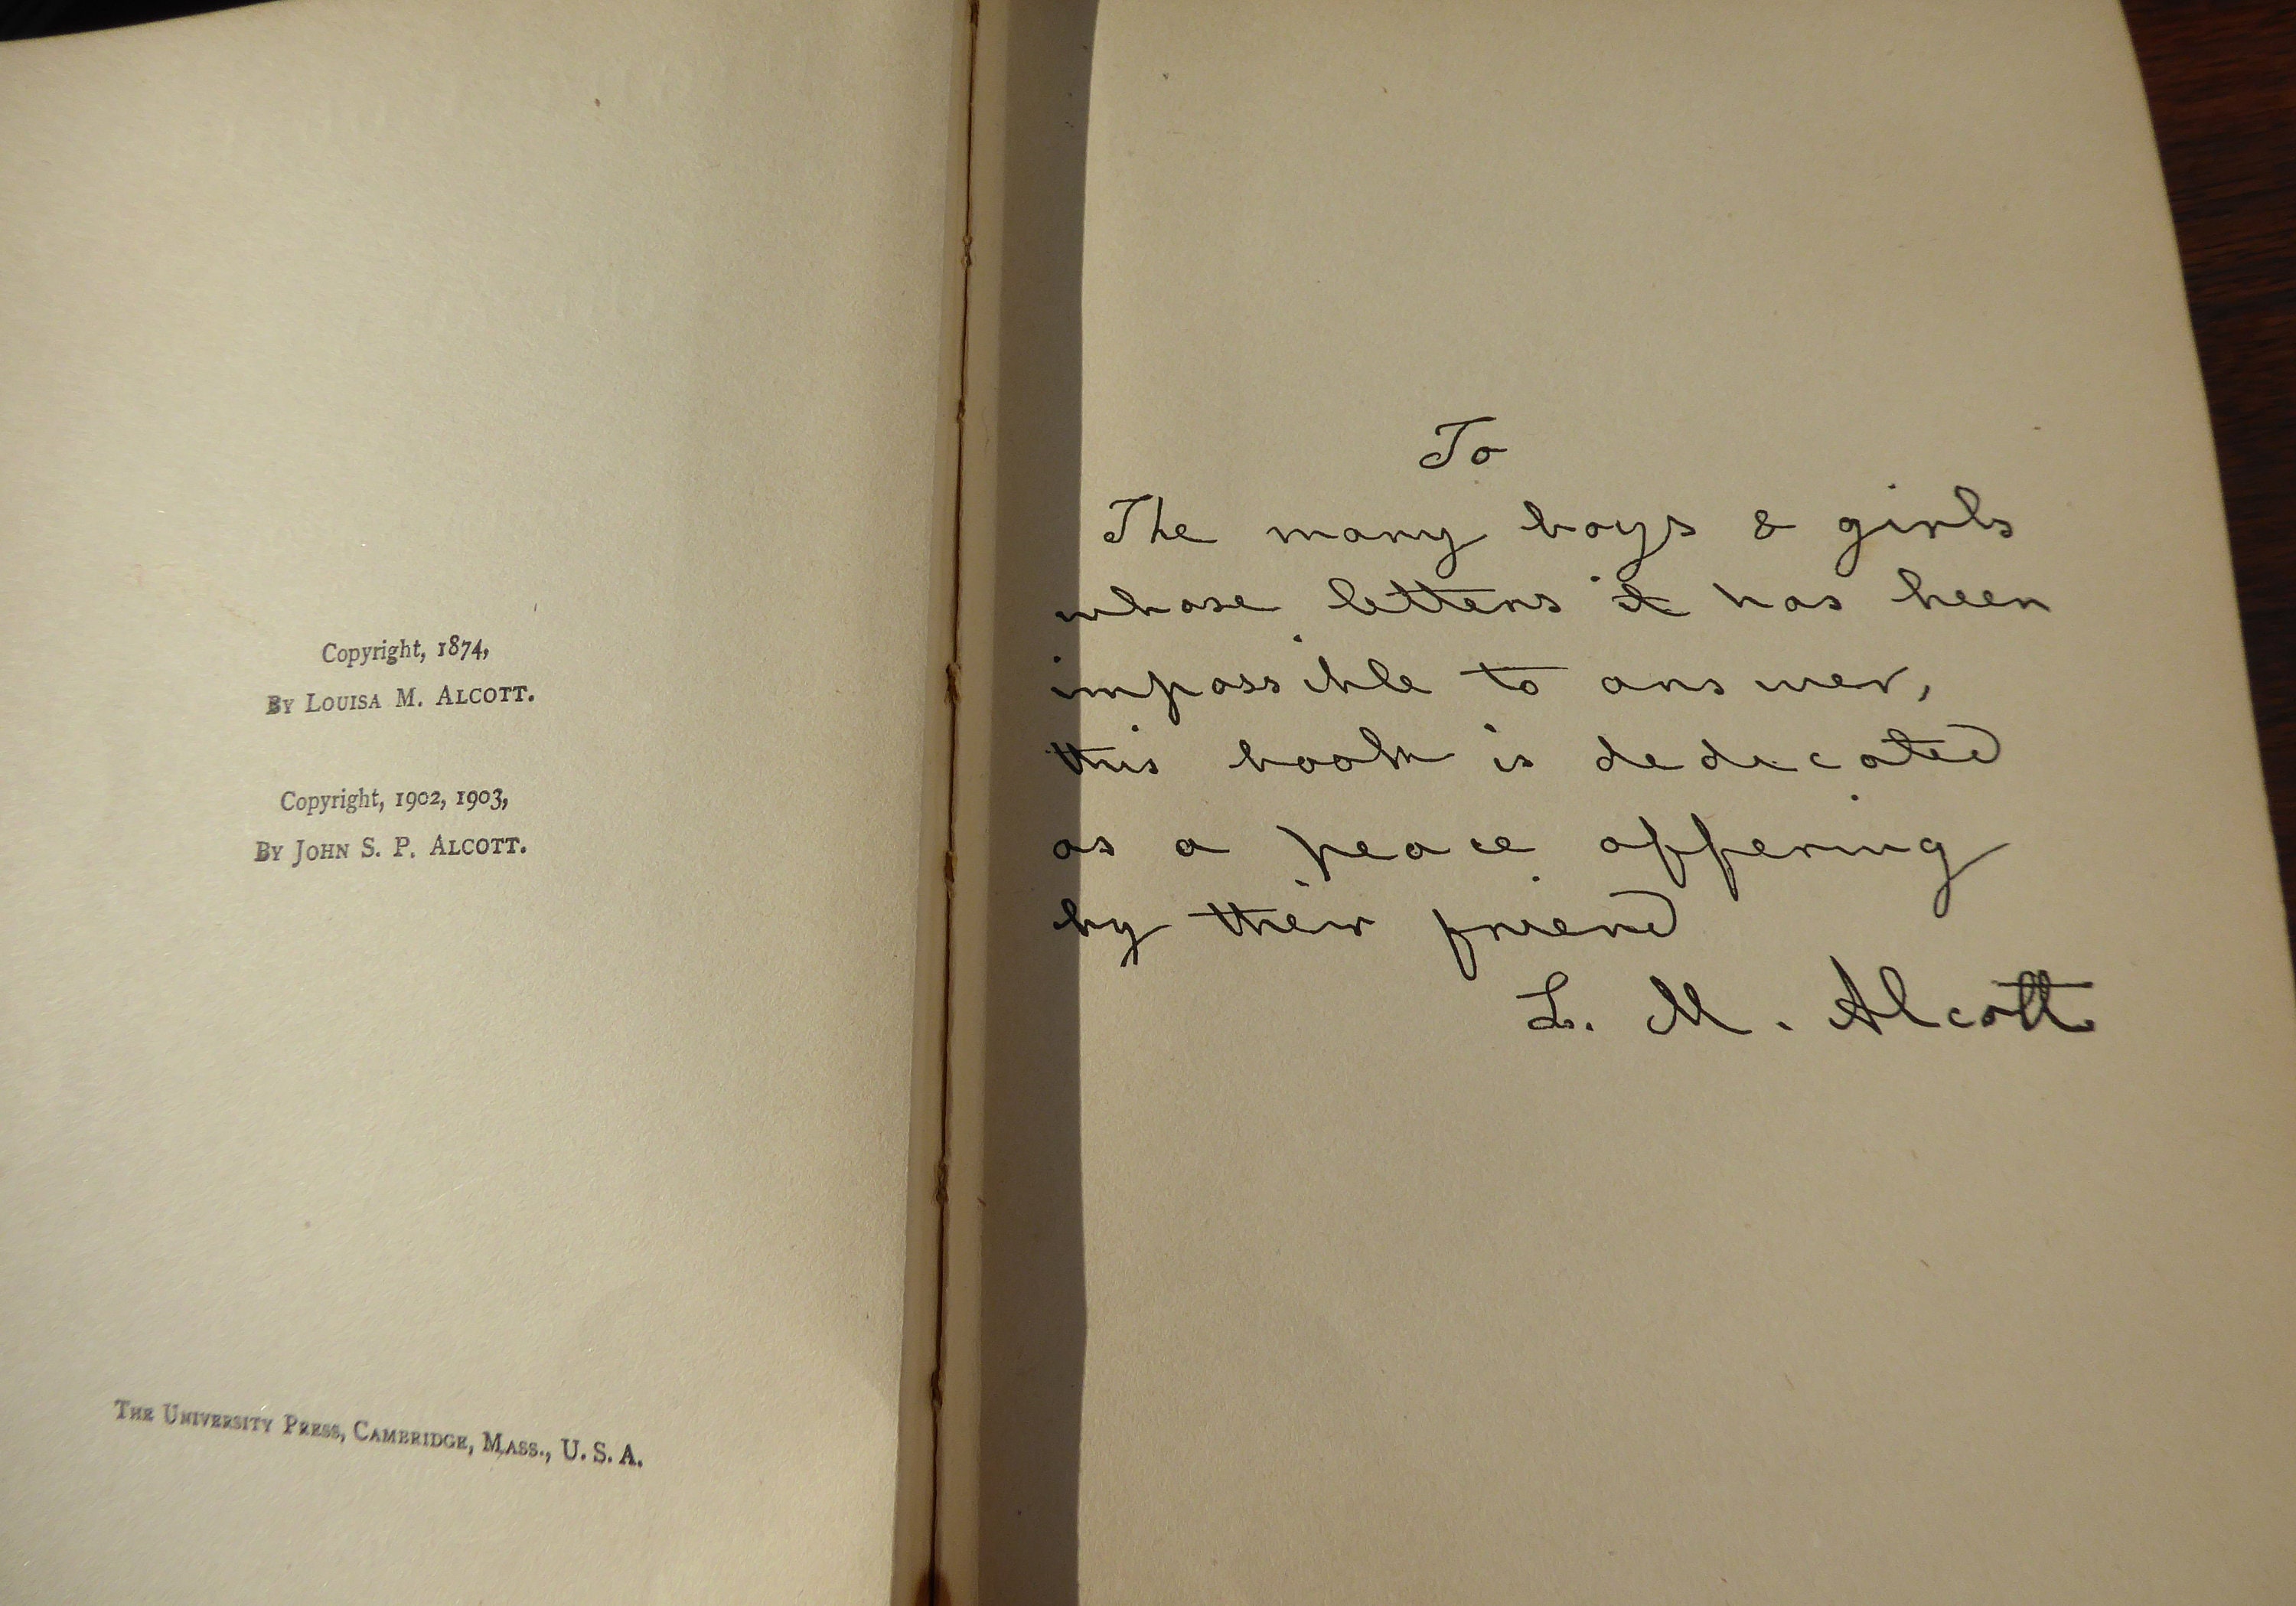 Copyright, 1874,
By Louisa M. Alcott.
Copyright, 1902, 1903,
By John S. P. Alcott.
The University Press, Cambridge, Mass., U. S. A.
To
The many boys & girls
whose letters it has been
impossible to answer,
this book is dedicated
as a peace offering
by their friend
L. M. Alcott.